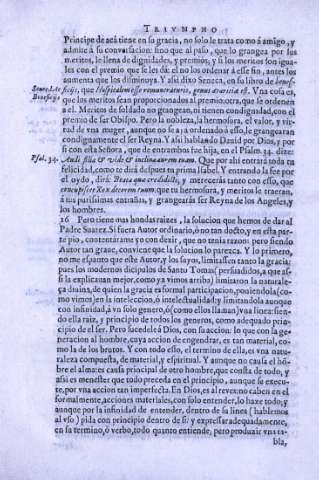 TRIVMPHO
Principe de acá tiene en su gracia, no solo le trata como á amigo, y
admite â su conuersacion: sino que al paso, que lo grangea por sus
meritos, le llena de dignidades, y premios, y si los meritos son igua-
les con el premio que se les dâ: el no los ordenar à esse fin, antes los
aumenta que los disminuye. Y assi dixo Seneca, en su libro de benef-
Senec. Lib.
ficijs, que Hospitalem esse remuneratorio, genus avaritiæ est. Vna cosa es,
Beneficijs
que los meritos sean proporcionados al premio, otra, que se ordenen
a el. Meritos de soldado no grangean, ni tienen condignidad, con el
premio de ser Obispo. Pero la nobleza, la hermosura, el valor, y vir-
tud de vna muger, aunque no se a ordenado à esso, le grangearan
condignamente el ser Reyna. Y assi hablando David por Dios, y por
si con esta señora, que de entrambos fue hija, en el Psalm. 34. dize:
Psal. 34.
Audi filia & vide & inclina aurem tuam. Que por ahi entrará toda tu
felicidad, como te dirá despues tu prima Isabel. Y entrando la fee por
el oydo, dirà: Beata que credidisti, y mereceràs tanto con esso, que
concupiscet Rex decorem tuum: que tu hermosura, y meritos le traeran,
â tus purissimas entrañas, y grangearás ser Reyna de los Angeles, y
los hombres.
16 Pero tiene mas hondas raizes, la solucion que hemos de dar al
Padre Suarez. Si fuera Autor ordinario, ò no tan docto, y en esta par-
te pio, contentarame yo con dezir, que no tenia razon: pero siendo
Autor tan graue, conviene que la solucion lo parezca. Y lo primero,
no me espanto que este Autor, y los sayos, limitassen tanto la gracia;
pues los modernos dicipulos de Santo Tomas (persuadidos, a que as-
si la explicauan mejor, como ya vimos arriba) limitaron la naturale-
ça diuina, de quien la gracia es formal participacion, poniendola (co-
mo vimos) en la inteleccion, ó intelectualidad: y limitandola aunque
con infinidad, à vn solo genero, ó (como ellos llaman) vna linea: sien-
do ella raiz, y principio de todos los generos, como adequado prin-
cipio de el ser. Pero sucedele á Dios, con su accion: lo que con la ge-
neracion al hombre, cuya accion de engendrar, es tan material, co-
mo la de los brutos. Y con todo esso, el termino de ella, es vna natu-
raleza compuesta, de material, y espiritual. Y aunque no causa el hõ-
bre el alma: es causa principal de otro hombre, que consta de todo, y
assi es menester que todo preceda en el principio, aunque se execu-
te, por vna accion tan imperfecta. En Dios, es al reves: no caben en el
formalmente, acciones materiales, con solo entender, lo haze todo; y
aunque por la infinidad de entender, dentro de su linea (hablemos
al vso) pida con principio dentro de si: y expressar adequadamente,
en su termino, ó verbo, todo quanto entiende, pero produzir vna ta-
bla,